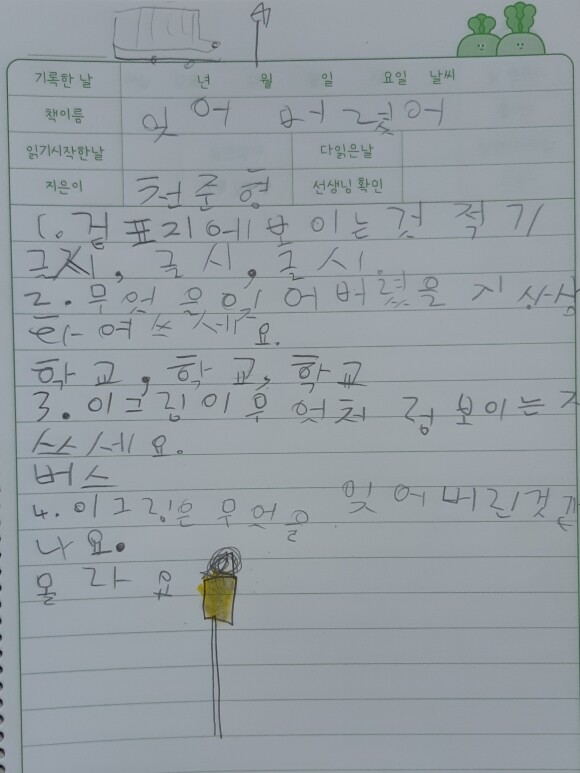 기록한 날 년 월 일 요일 날씨
책이름 잊어 버렸어
읽기시작한날 다읽은날
지은이 천준형 선생님 확인
1. 겉표지에 보이는 것 적기
글시, 글시, 글시.
2. 무엇을 잊어버렸을지 상상
하여 쓰세요.
학교, 학교, 학교
3. 이그림이 무엇처럼 보이는지
쓰세요.
버스
4. 이그림은 무엇을 잊어버린것같
나요.
몰라요